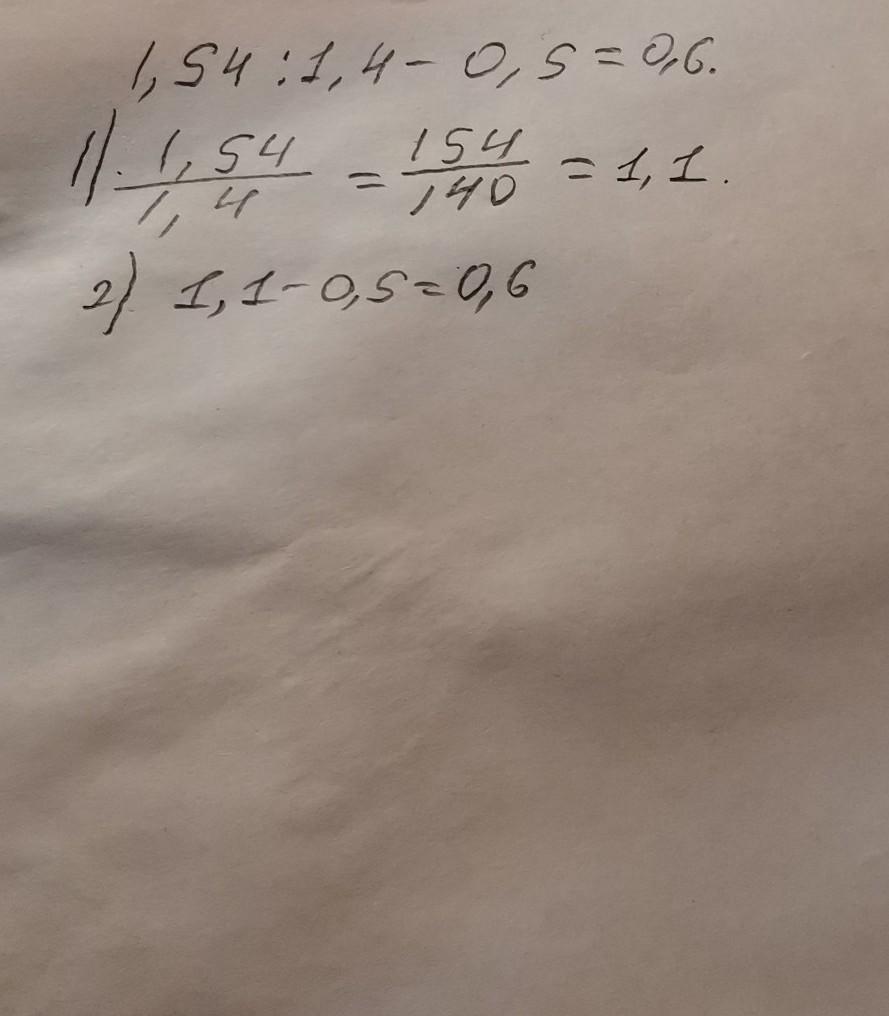 1,54 : 1,4 - 0,5 = 0,6.
1). 1,54/1,4 = 154/140 = 1,1.
2) 1,1 - 0,5 = 0,6